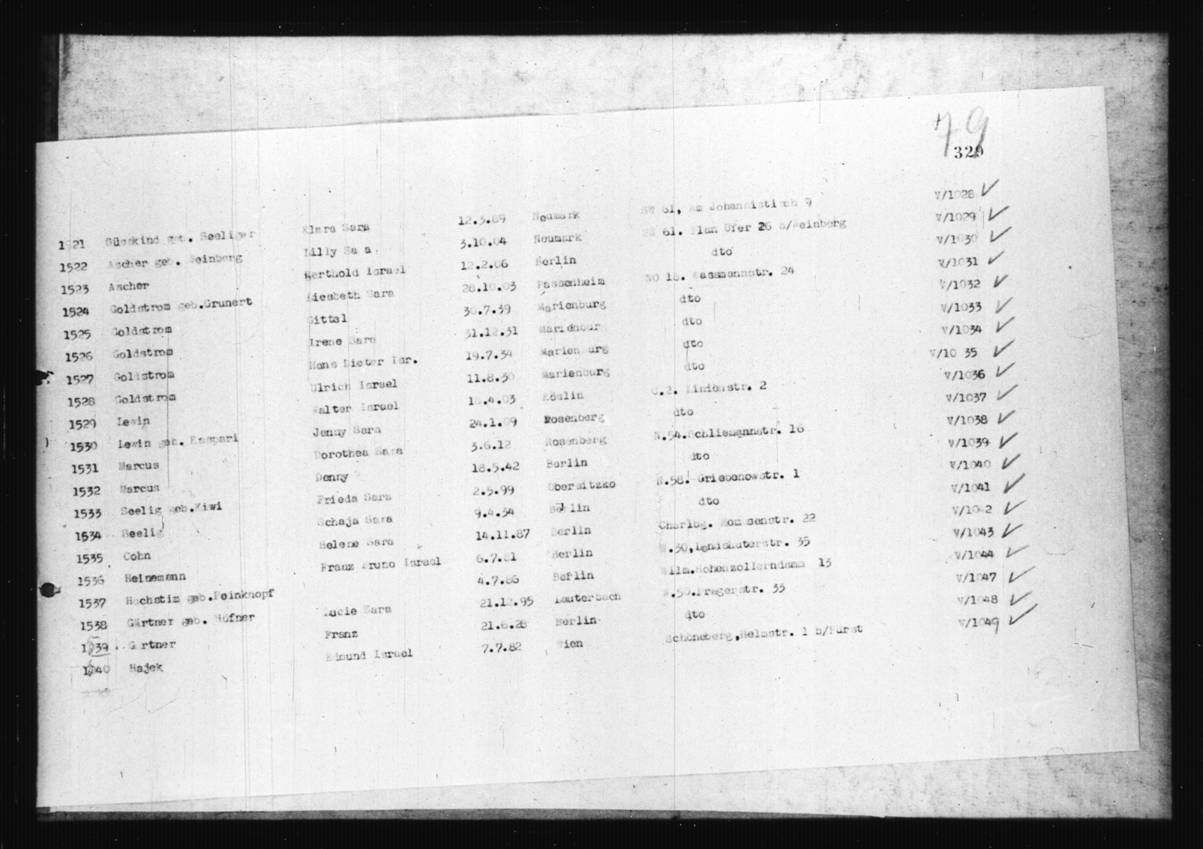 79
329
1521 Süsskind geb. Seeliger Klara Sara 12.3.89 Neumark SW 61, Am Johannistisch 9 V/1028 ✓
1522 Ascher geb. Weinberg Lilly Sara 3.10.04 Neumark SW 61. Plan Ufer 26 b/Weinberg V/1029 ✓
1523 Ascher Berthold Israel 12.2.06 Berlin dto V/1030 ✓
1524 Goldstrom geb.Grunert Liesbeth Sara 28.10.03 Passenheim NO 18. Wassmannstr. 24 V/1031 ✓
1525 Goldstrom Gittel 30.7.39 Marienburg dto V/1032 ✓
1526 Goldstrom Irene Sara 31.12.31 Marienburg dto V/1033 ✓
1527 Goldstrom Hans Dieter Isr. 19.7.34 Marienburg dto V/1034 ✓
1528 Goldstrom Ulrich Israel 11.8.30 Marienburg dto V/10 35 ✓
1529 Lewin Walter Israel 18.4.03 Köslin C.2. 2 V/1036 ✓
1530 Lewin geb. Kaspari Jenny Sara 24.1.09 Rosenberg dto V/1037 ✓
1531 Marcus Dorothea Sara 3.6.12 Rosenberg N.54.Schliemannstr. 16 V/1038 ✓
1532 Marcus Denny 18.5.42 Berlin dto V/1039 ✓
1533 Seelig geb.Kiwi Frieda Sara 2.5.99 Obersitzko N.58. Griebenowstr. 1 V/1040 ✓
1534 Seelig Schaja Sara 9.4.34 Berlin dto V/1041 ✓
1535 Cohn Helene Sara 14.11.87 Berlin Charlbg. Mommsenstr. 22 V/1042 ✓
1536 Heinemann Franz Bruno Israel 6.7.81 Berlin 35 V/1043 ✓
1537 Hochstim geb.Feinknopf 4.7.86 Berlin Wilm.Hohenzollerndamm 13 V/1044 ✓
1538 Gärtner geb. Höfner Lucie Sara 21.12.95 Lauterbach W.50.Pragerstr. 33 V/1047 ✓
1539 Gärtner Franz 21.6.28 Berlin dto V/1048 ✓
1540 Hajek Edmund Israel 7.7.82 Wien Schöneberg,Helmstr. 1 b/Furst V/1049 ✓